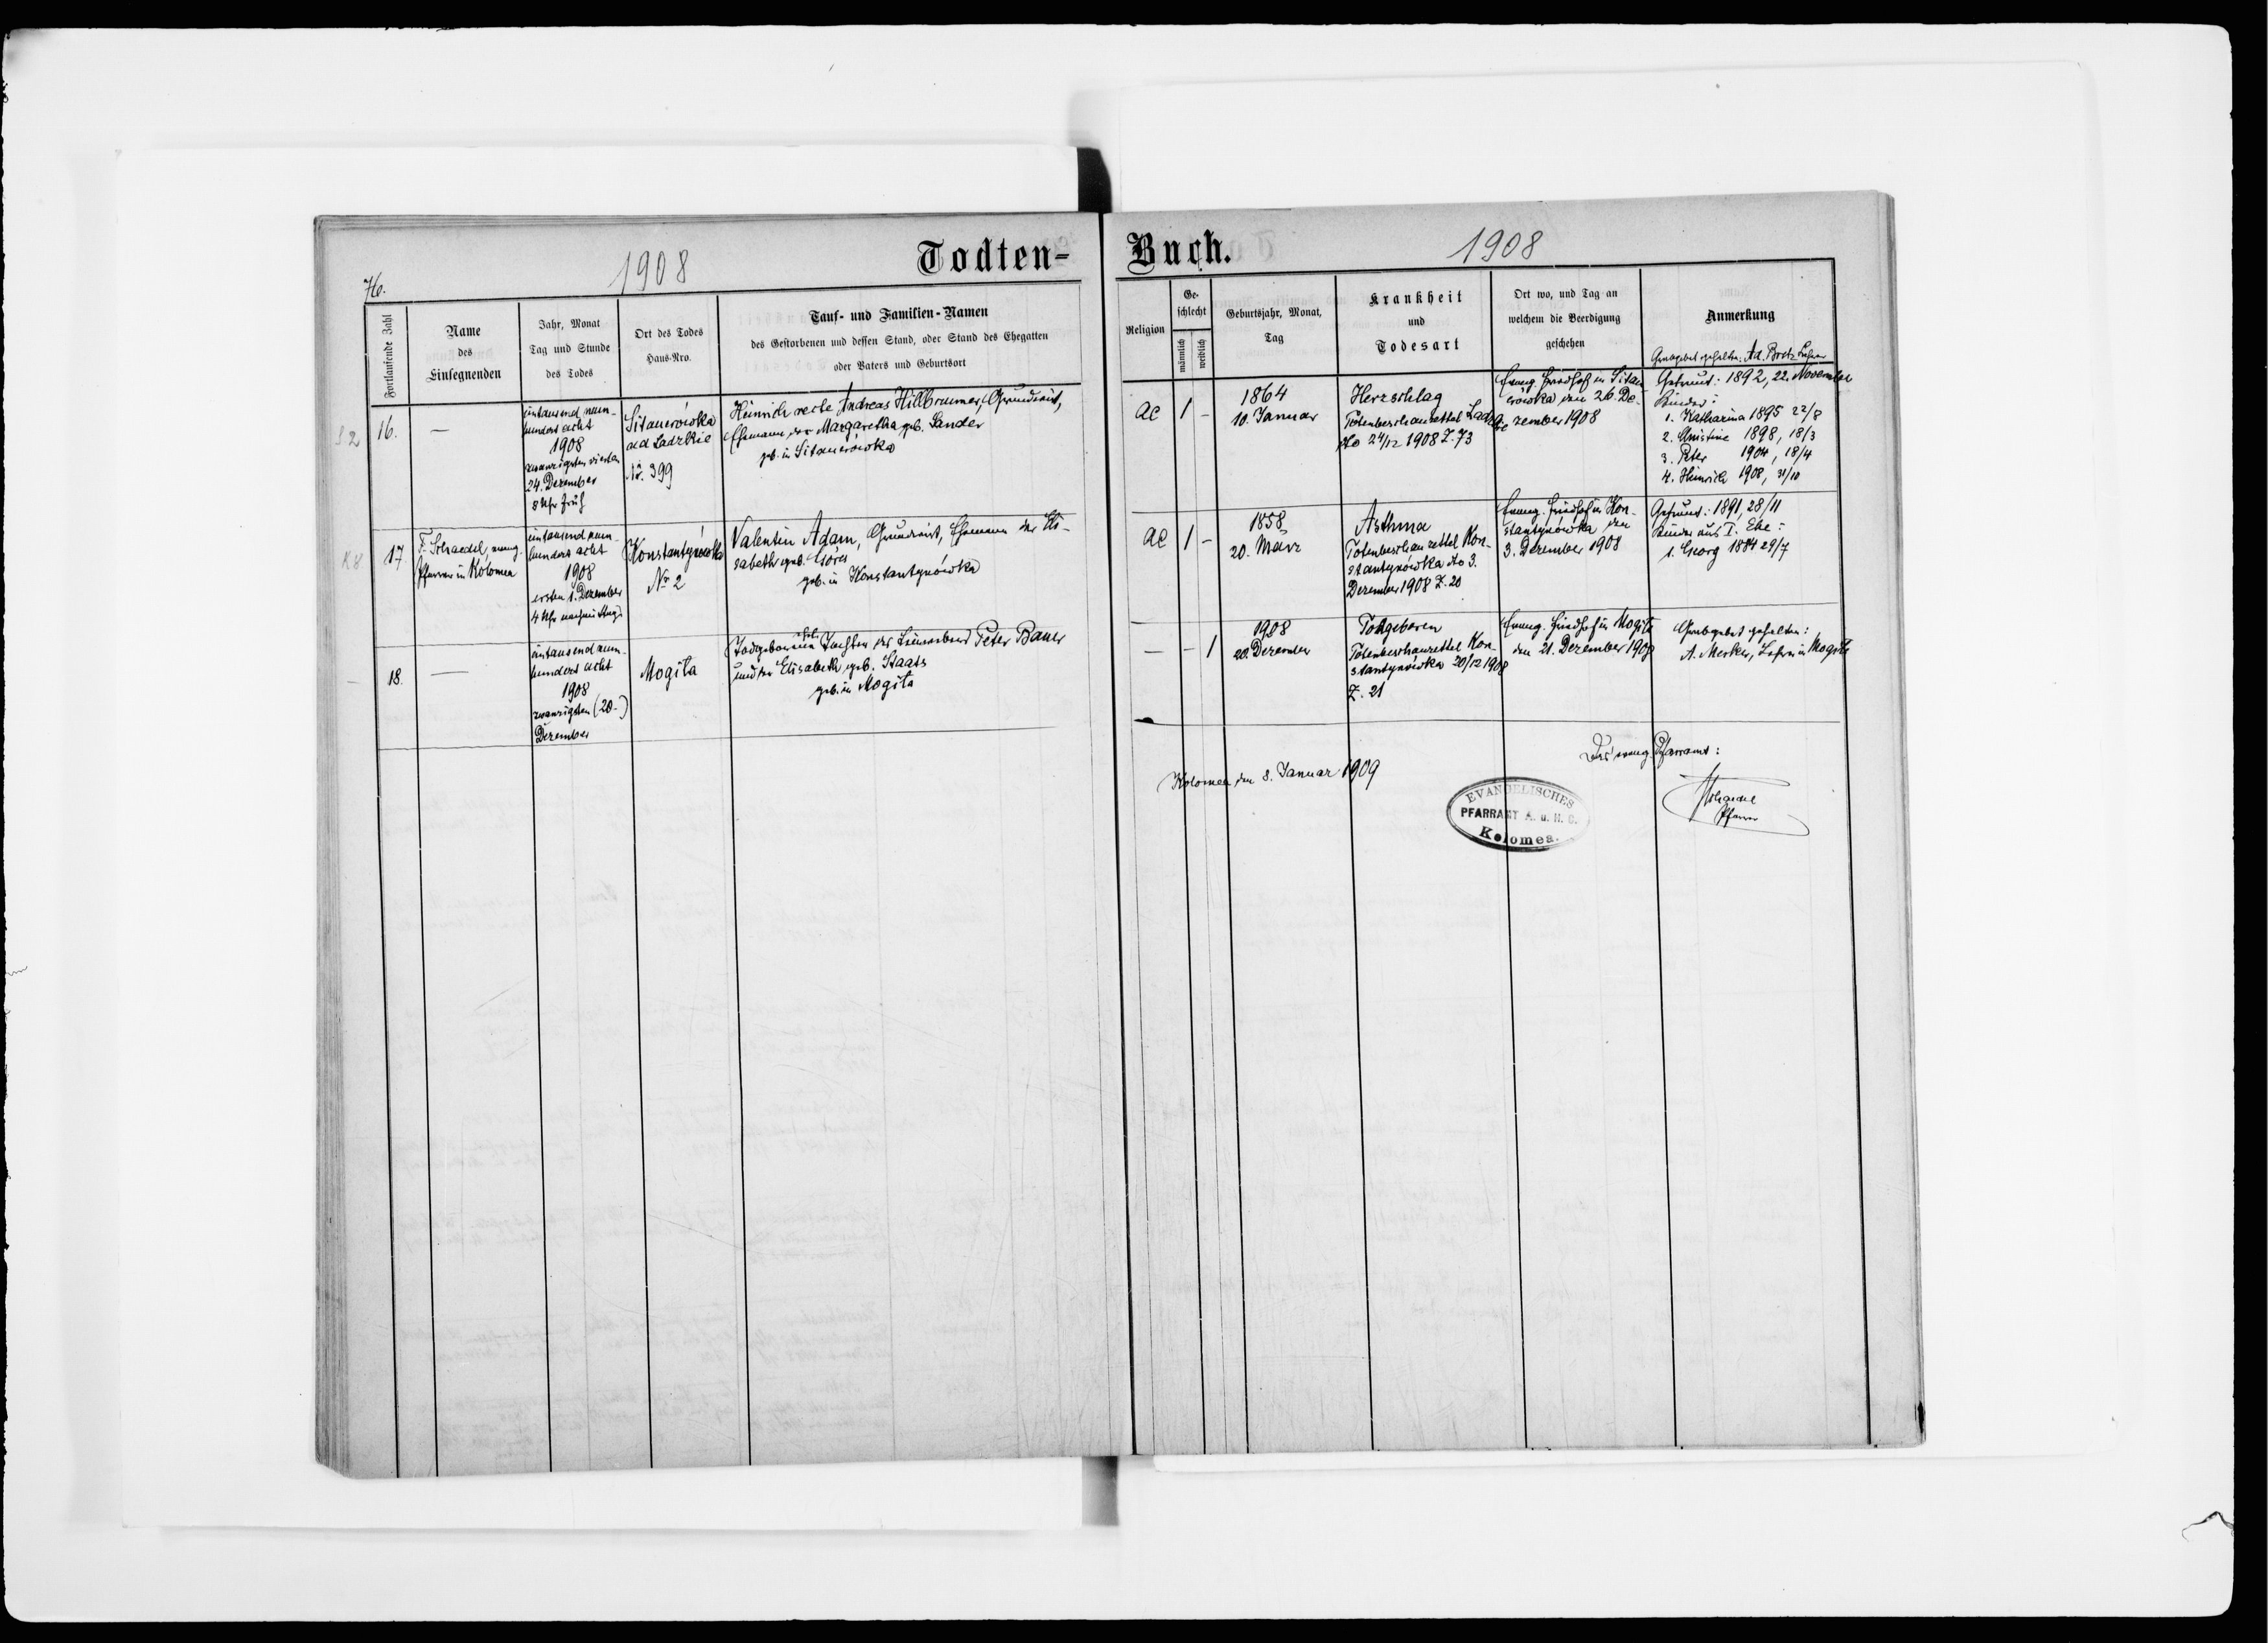 76.
1908
Todten-
Fortlaufende Zahl
Name
des
Einsegnenden
Jahr, Monat
Tag und Stunde
des Todes
Ort des Todes
Haus-Nro.
Tauf- und Familien-Namen
des Gestorbenen und dessen Stand, oder Stand des Ehegatten
oder Vaters und Geburtsort
S 2
16.
—
eintausend neun-
hundert acht
1908
zwanzigsten vierten
24. Dezember
8 Uhr früh
Sitauerówka
ad Ladzkie
Nr. 399
Heinrich recte Andreas Hillbrunner, Grundwirt,
Ehemann der Margaretha geb. Sander
geb. in Sitauerówka
K 8
17.
F. Schaedel, evang.
Pfarrer in Kolomea
eintausend neun-
hundert acht
1908
ersten 1. Dezember
4 Uhr nachmittags
Konstantynówka
Nr 2
Valentin Adam, Grundwirt, Ehemann der Eli-
sabeth geb.
geb. in Konstantynówka
—
18.
—
eintausend neun-
hundert acht
1908
zwanzigsten (20.)
Dezember
Mogila
Todgeborene ehel. Tochter des Peter Bauer
und der Elisabeth, geb. Staats
geb. in Mogila
Buch.
1908
Religion
Ge-
schlecht
männlich
weiblich
Geburtsjahr, Monat,
Tag
Krankheit
und
Todesart
Ort wo, und Tag an
welchem die Beerdigung
geschehen
Anmerkung
Grabgebet gehalten: Ad. Bretz Lehrer
AC
1
-
1864
10. Januar
Herzschlag
Totenbeschauzettel Ladzkie
dto 24/12 1908 Z. 73
Evang. Friedhof in Sitau-
erówka den 26. De-
zember 1908
Getraut: 1892, 22. November
Kinder:
1. Katharina 1895 22/8
2. Christine 1898, 18/3
3. Peter 1904, 18/4
4. Heinrich 1908, 31/10
AC
1
-
1858
20. März
Asthma
Totenbeschauzettel Kon-
stantynówka dto 3.
Dezember 1908 Z. 20
Evang. Friedhof in Kon-
stantynówka den
3. Dezember 1908
Getraut: 1891, 28/11
Kinder aus I. Ehe:
1. Georg 1884 29/7
—
-
1
1908
20. Dezember
Totgeboren
Totenbeschauzettel Kon-
stantynówka 20/12 1908
Z. 21
Evang. Friedhof in Mogila
den 21. Dezember 1908
Grabgebet gehalten:
A. Merker, Lehrer in Mogila
Das evang. Pfarramt:
Kolomea, den 8. Januar 1909
EVANGELISCHES
PFARRAMT A. u. H. C.
Kolomea.
Schaedel
Pfarrer